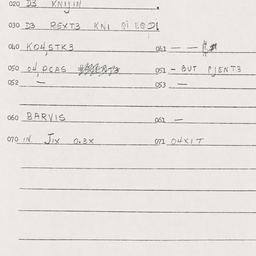 020 D3 KNIJIN
030 D3 REXT3 KNI
040 KO4,STK3 041 — —
050 O4,DCAS 051 – BUT PJENT3
052 — 053 —
060 BARVIS 061 —
070 IN JIX O.3X 071 O4XIT